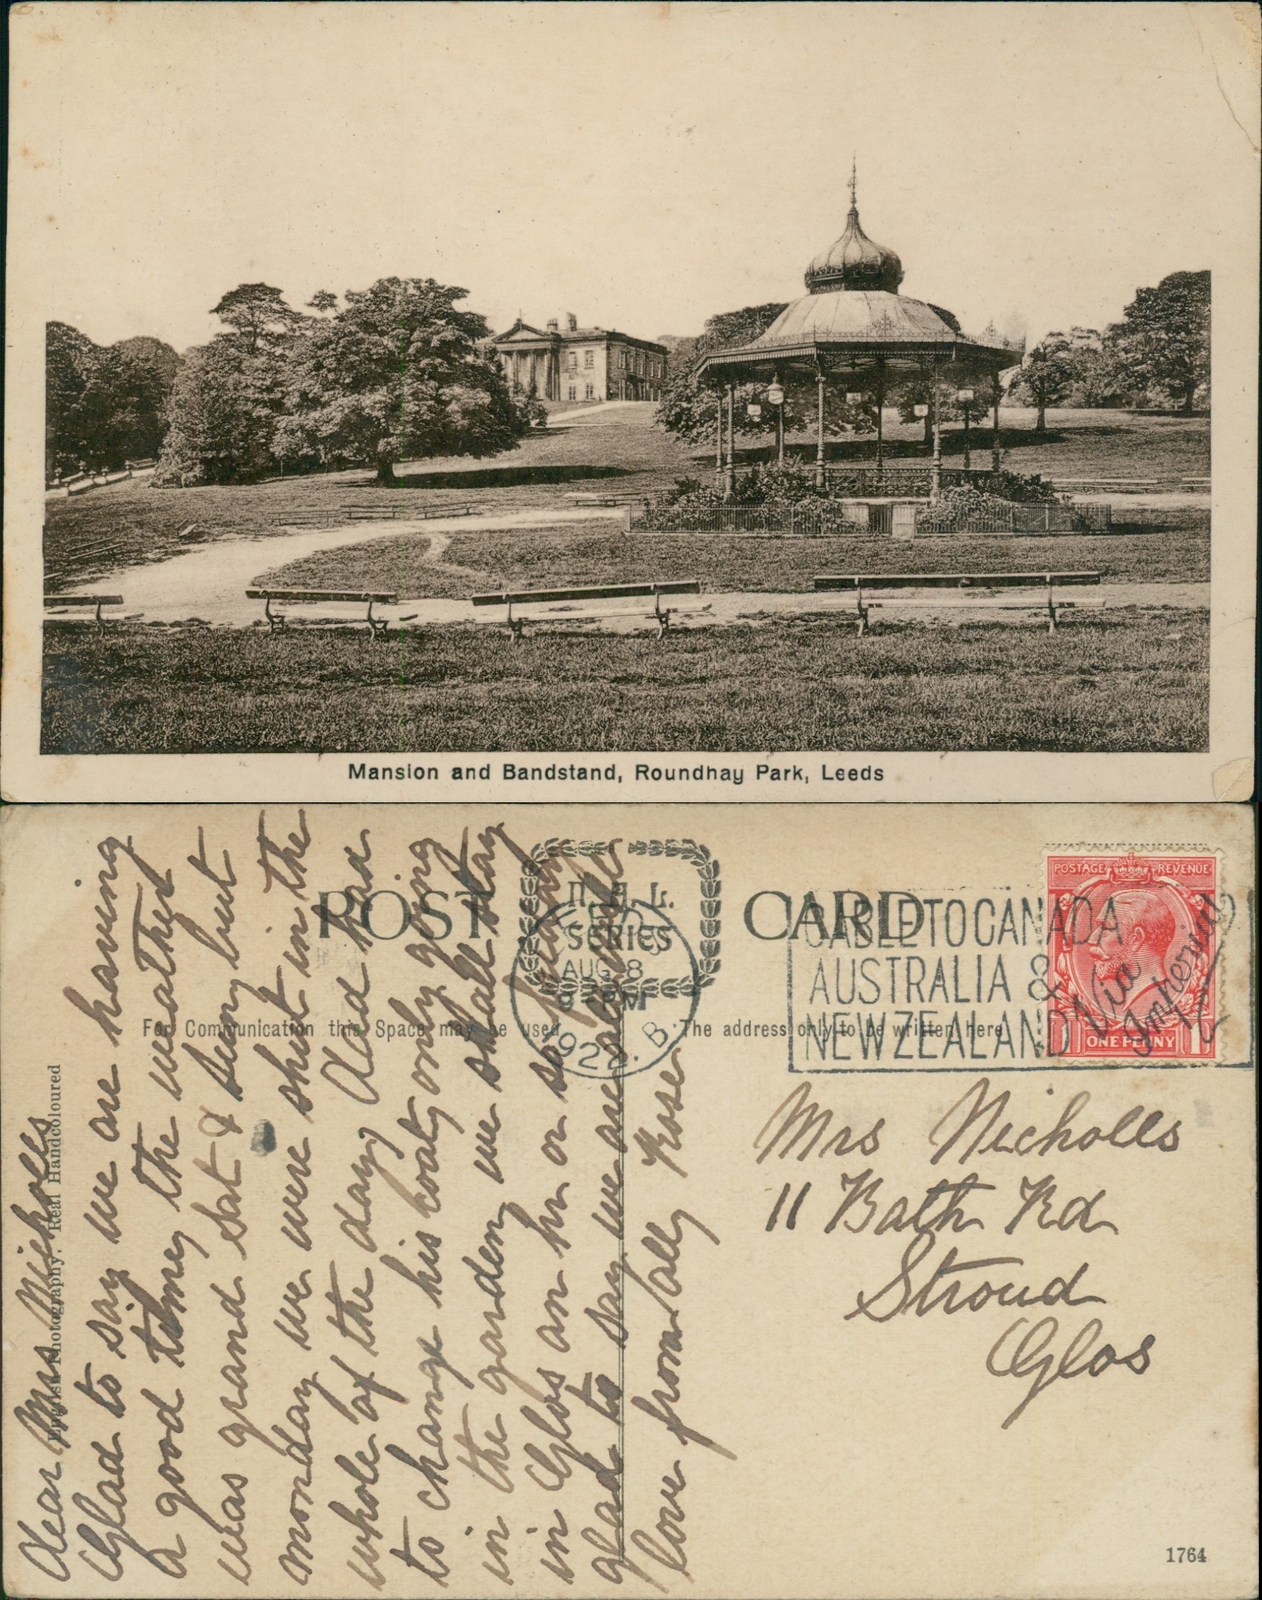 Mansion and Bandstand, Roundhay Park, Leeds
POST CARD
SERIES
AUG 8
CABLE TO CANADA
AUSTRALIA &
NEW ZEALAND
Via
Imperial
POSTAGE REVENUE
ONE PENNY
For Communication this Space may be used
The address only to be written here
English Photography. Real Handcoloured
Dear Mrs Nicholls
Glad to say we are having
a good time, the weather
was grand Sat & Sunday but
monday we were shut in the
whole of the day Dad has
to change his coat, only going
in the garden, we shall stay
in Glos an hr or so
glad to say we are all well
love from all, Rose
Mrs Nicholls
11 Bath Rd
Stroud
Glos
1764